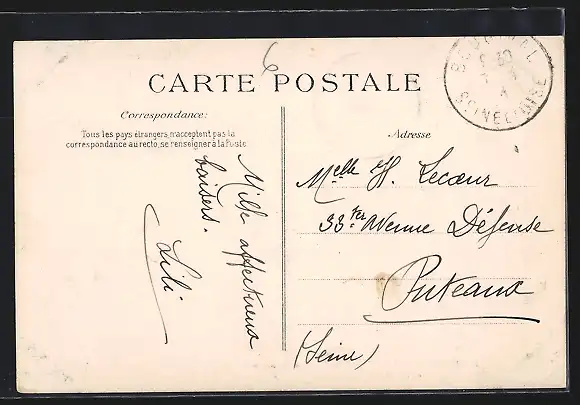 CARTE POSTALE
Correspondance:
Tous les pays étrangers n'acceptent pas la
correspondance au recto, se renseigner à la Poste
Mille affectueux
baisers.
Lili
Adresse
Melle H. Lecœur
33 ter Avenue Défense
Puteaux
(Seine)
SEINE ET OISE